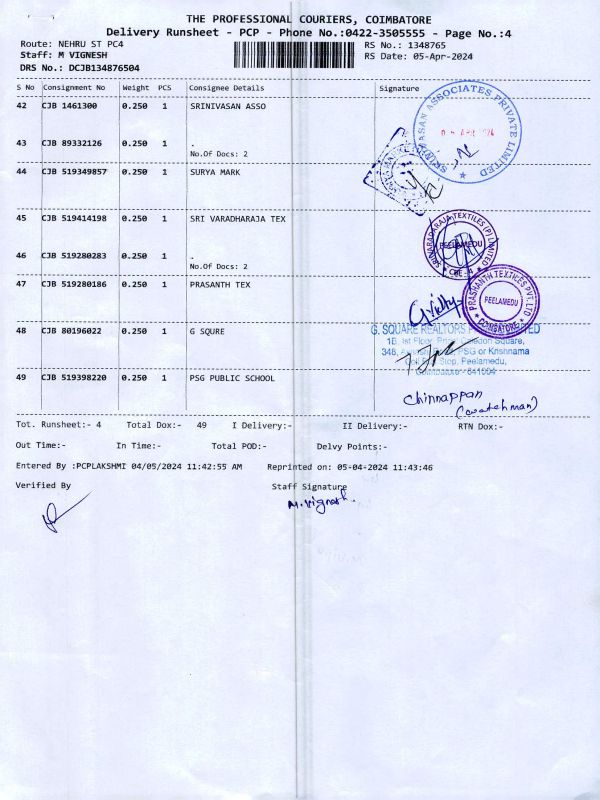 THE PROFESSIONAL COURIERS, COIMBATORE
Delivery Runsheet - PCP - Phone No.:0422-3505555 - Page No.:4
Route: NEHRU ST PC4 RS No.: 1348765
Staff: M VIGNESH RS Date: 05-Apr-2024
DRS No.: DCJB134876504
S No Consignment No Weight PCS Consignee Details Signature
42 CJB 1461300 0.250 1 SRINIVASAN ASSO
SRINIVASAN ASSOCIATES PRIVATE LIMITED
43 CJB 89332126 0.250 1 .
No.Of Docs: 2
44 CJB 519349857 0.250 1 SURYA MARK
45 CJB 519414198 0.250 1 SRI VARADHARAJA TEX
SRI VARADARAJA TEXTILES (P) LIMITED
PEELAMEDU
CBE - 4
46 CJB 519280283 0.250 1 .
No.Of Docs: 2
47 CJB 519280186 0.250 1 PRASANTH TEX
PRASHANTH TEXTILES PVT. LTD
PEELAMEDU
COIMBATORE
48 CJB 80196022 0.250 1 G SQURE
G. SQUARE REALTORS LIMITED
1B, 1st Floor, Square,
PSG or Krishnama
Stop, Peelamedu,
Coimbatore - 641004
49 CJB 519398220 0.250 1 PSG PUBLIC SCHOOL
Chinnappan
(watchman)
Tot. Runsheet:- 4 Total Dox:- 49 I Delivery:- II Delivery:- RTN Dox:-
Out Time:- In Time:- Total POD:- Delvy Points:-
Entered By :PCPLAKSHMI 04/05/2024 11:42:55 AM Reprinted on: 05-04-2024 11:43:46
Verified By Staff Signature
M.Vignesh.